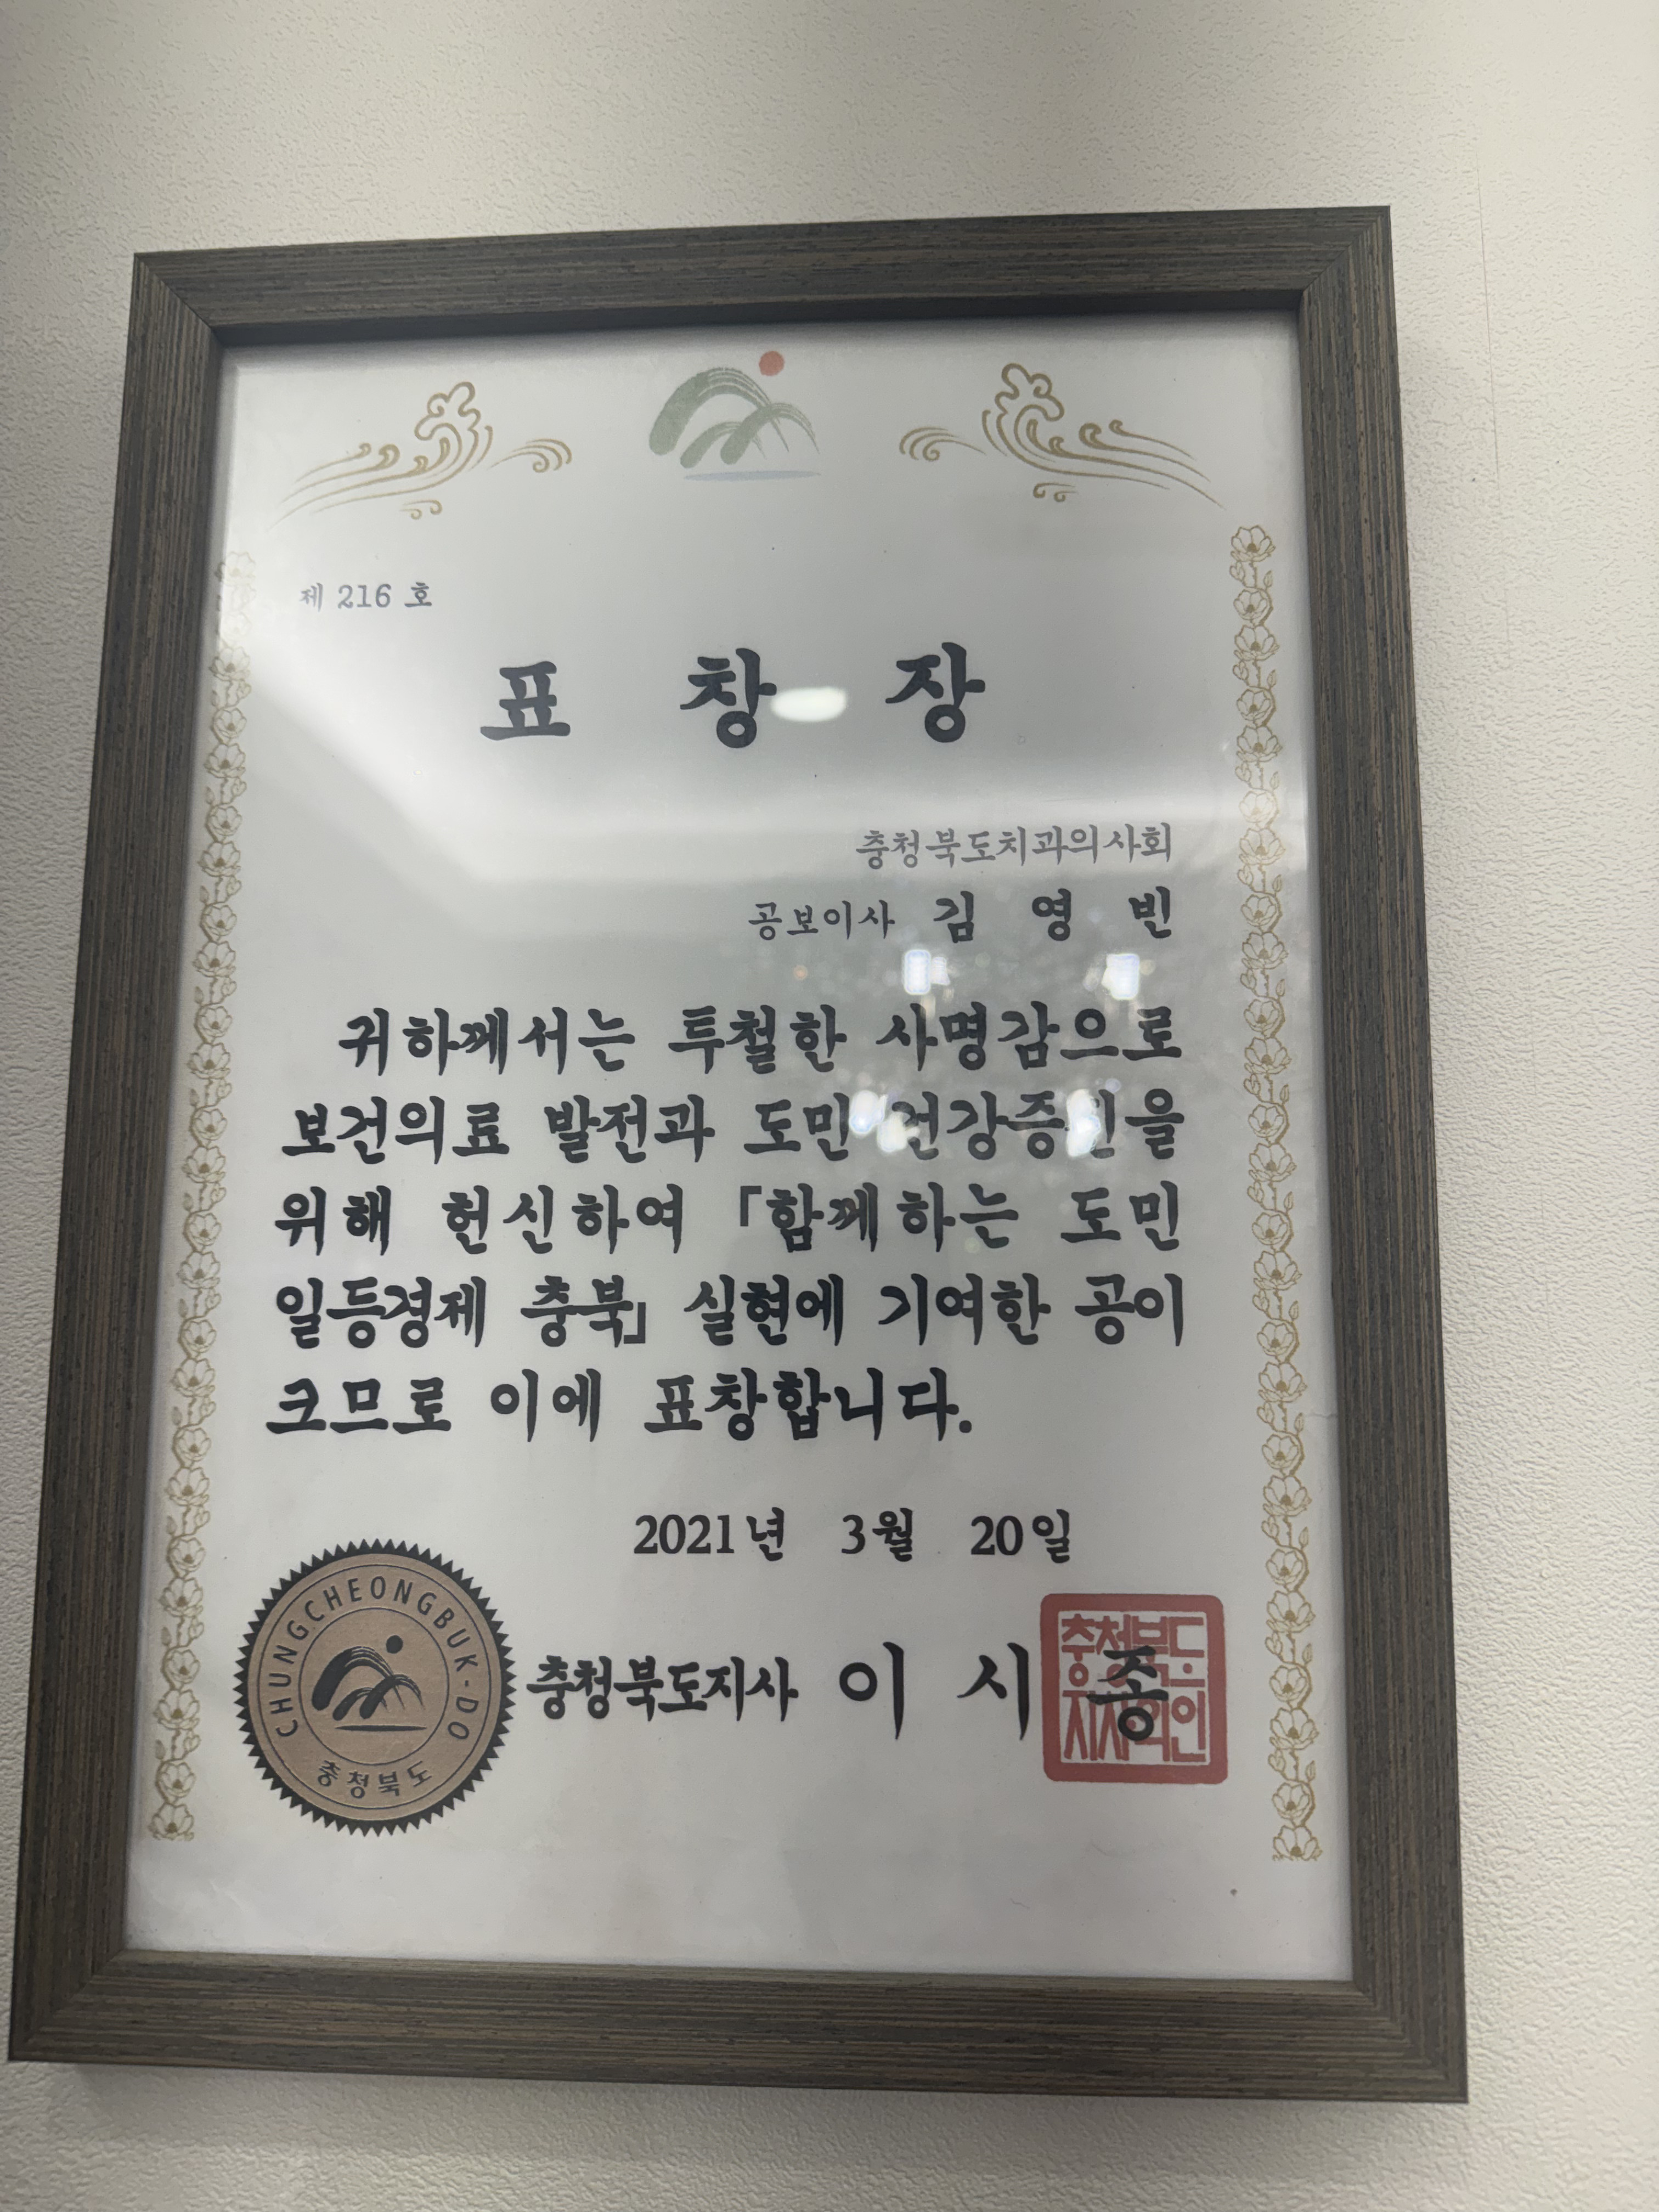 제 216 호
표 창 장
충청북도치과의사회
공보이사 김 영 빈
귀하께서는 투철한 사명감으로
보건의료 발전과 도민 건강증진을
위해 헌신하여 「함께하는 도민
일등경제 충북」 실현에 기여한 공이
크므로 이에 표창합니다.
2021년 3월 20일
충청북도지사 이 시 종
CHUNGCHEONGBUK-DO
충청북도
충청북도
지사의인